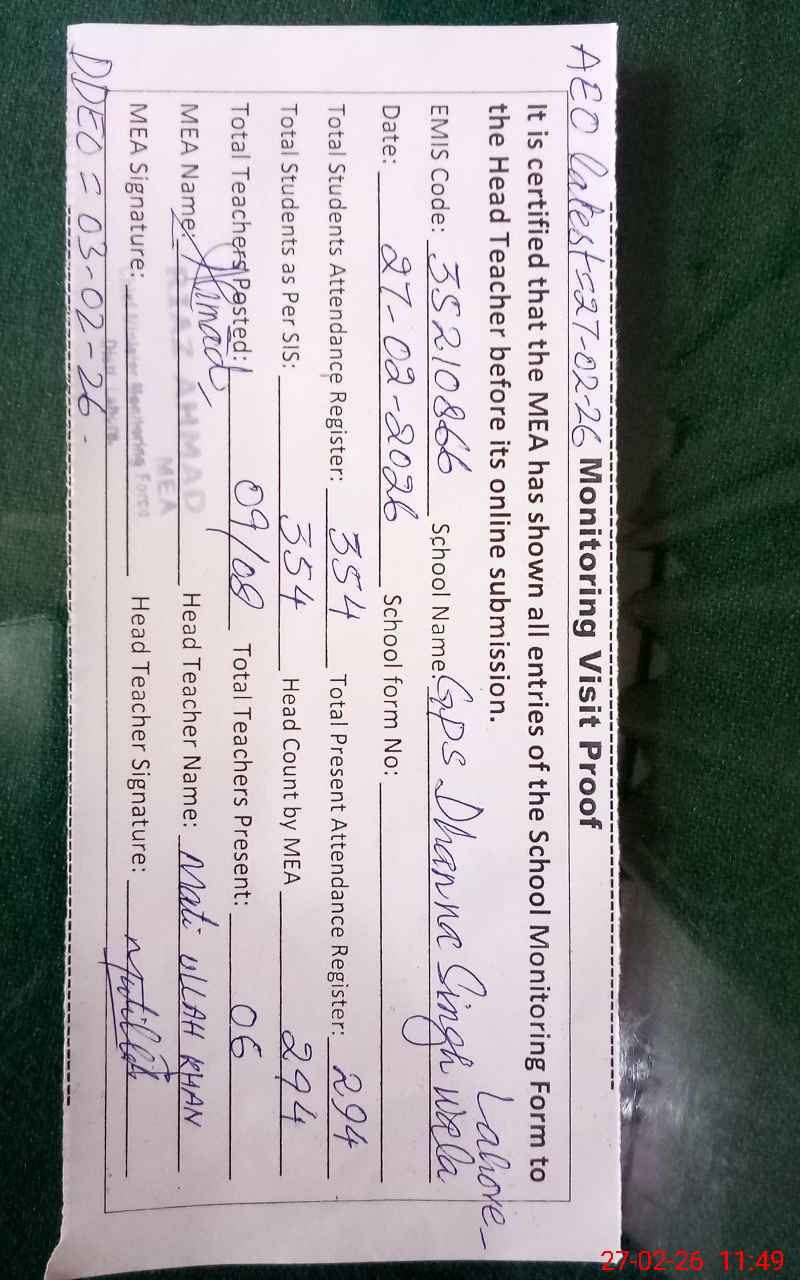 AEO latest = 27-02-26 Monitoring Visit Proof
It is certified that the MEA has shown all entries of the School Monitoring Form to
the Head Teacher before its online submission.
Lahore
EMIS Code: 35210866 School Name: GPS Dhanna Singh Wala
Date: 27-02-2026 School form No:
Total Students Attendance Register: 354 Total Present Attendance Register: 294
Total Students as Per SIS: 354 Head Count by MEA 294
Total Teachers Posted: 09/08 Total Teachers Present: 06
MEA Name: Ahmad Head Teacher Name: Mati ULLAH KHAN
AHMAD
MEA
MEA Signature: Head Teacher Signature:
Monitoring Force
DDEO = 03-02-26.
27-02-26 11:49